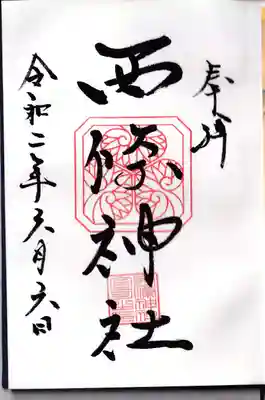 奉拝
西條神社
令和二年六月六日